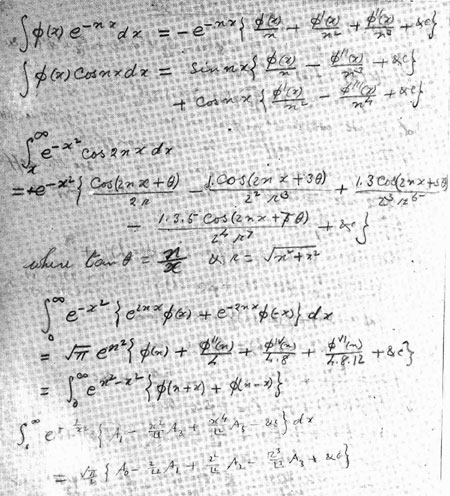 ∫φ(x) e^{-nx} dx = -e^{-nx}{φ(x)/n + φ'(x)/n² + φ''(x)/n³ + &c}
∫φ(x) Cos nx dx = Sin nx{φ(x)/n - φ''(x)/n³ + &c}
+ Cos nx {φ'(x)/n² - φ'''(x)/n⁴ + &c}
∫_x^∞ e^{-x²} cos 2nx dx
= e^{-x²}{Cos(2nx+θ)/2r - 1.Cos(2nx+3θ)/2² r³ + 1.3 Cos(2nx+5θ)/2³ r⁵
- 1.3.5 Cos(2nx+7θ)/2⁴ r⁷ + &c}
where tan θ = n/x & r = √n²+x²
∫_0^∞ e^{-x²} {e^{2nx} φ(x) + e^{-2nx} φ(-x)} dx
= √π e^{n²} {φ(n) + φ''(n)/4 + φ^{IV}(n)/4.8 + φ^{VI}(n)/4.8.12 + &c}
= ∫_0^∞ e^{n²-x²} {φ(n+x) + φ(n-x)}